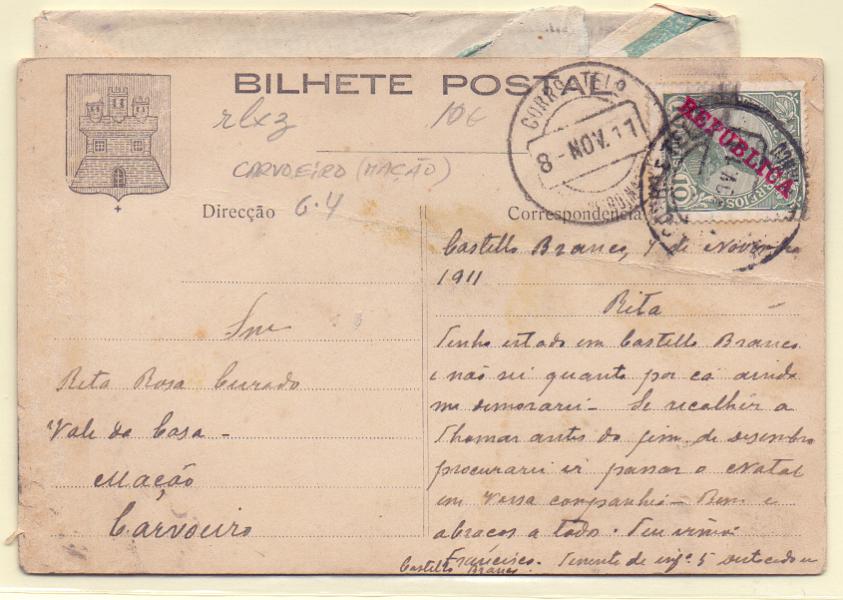 BILHETE POSTAL
rlxz
10€
CARVOEIRO (MAÇÃO)
6.4
CORRO E TELO
8 - NOV. 11
REPUBLICA
CORREIOS
10
Direcção
Correspondencia
Castello Branco, 7 de Novembro
1911
Rita
Tenho estado em Castello Branco
e não sei quanto por cá ainda
me demorarei - Se recolher a
Thomar antes do fim de desembro
procurarei ir passar o Natal
em vossa companhia -
abraços a todos. Teu irmão
Francisco. Tenente de infª. 5 destacado em
Castello Branco
Snra
Rita Rosa Curado
Vale da Casa -
Mação
Carvoeiro